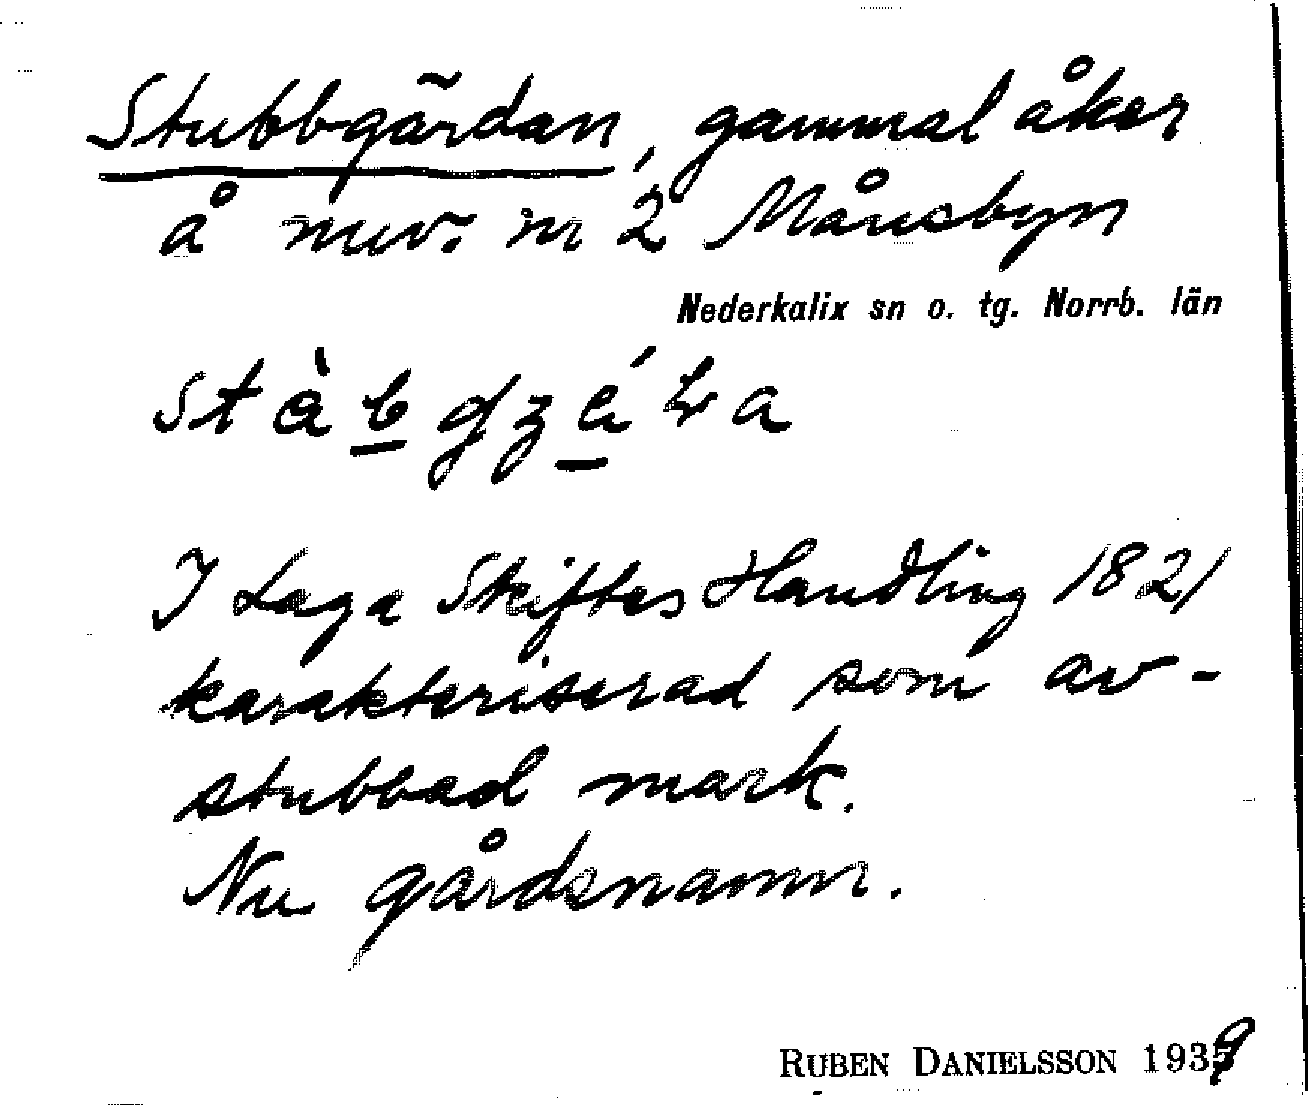 Stubbgärdan, gammal åker
å nuv. nr 2 Månsbyn
Nederkalix sn o. tg. Norrb. län
I Laga Skiftes Handling 1821
karakteriserad som av-
stubbad mark.
Nu gårdsnamn.
RUBEN DANIELSSON 1939